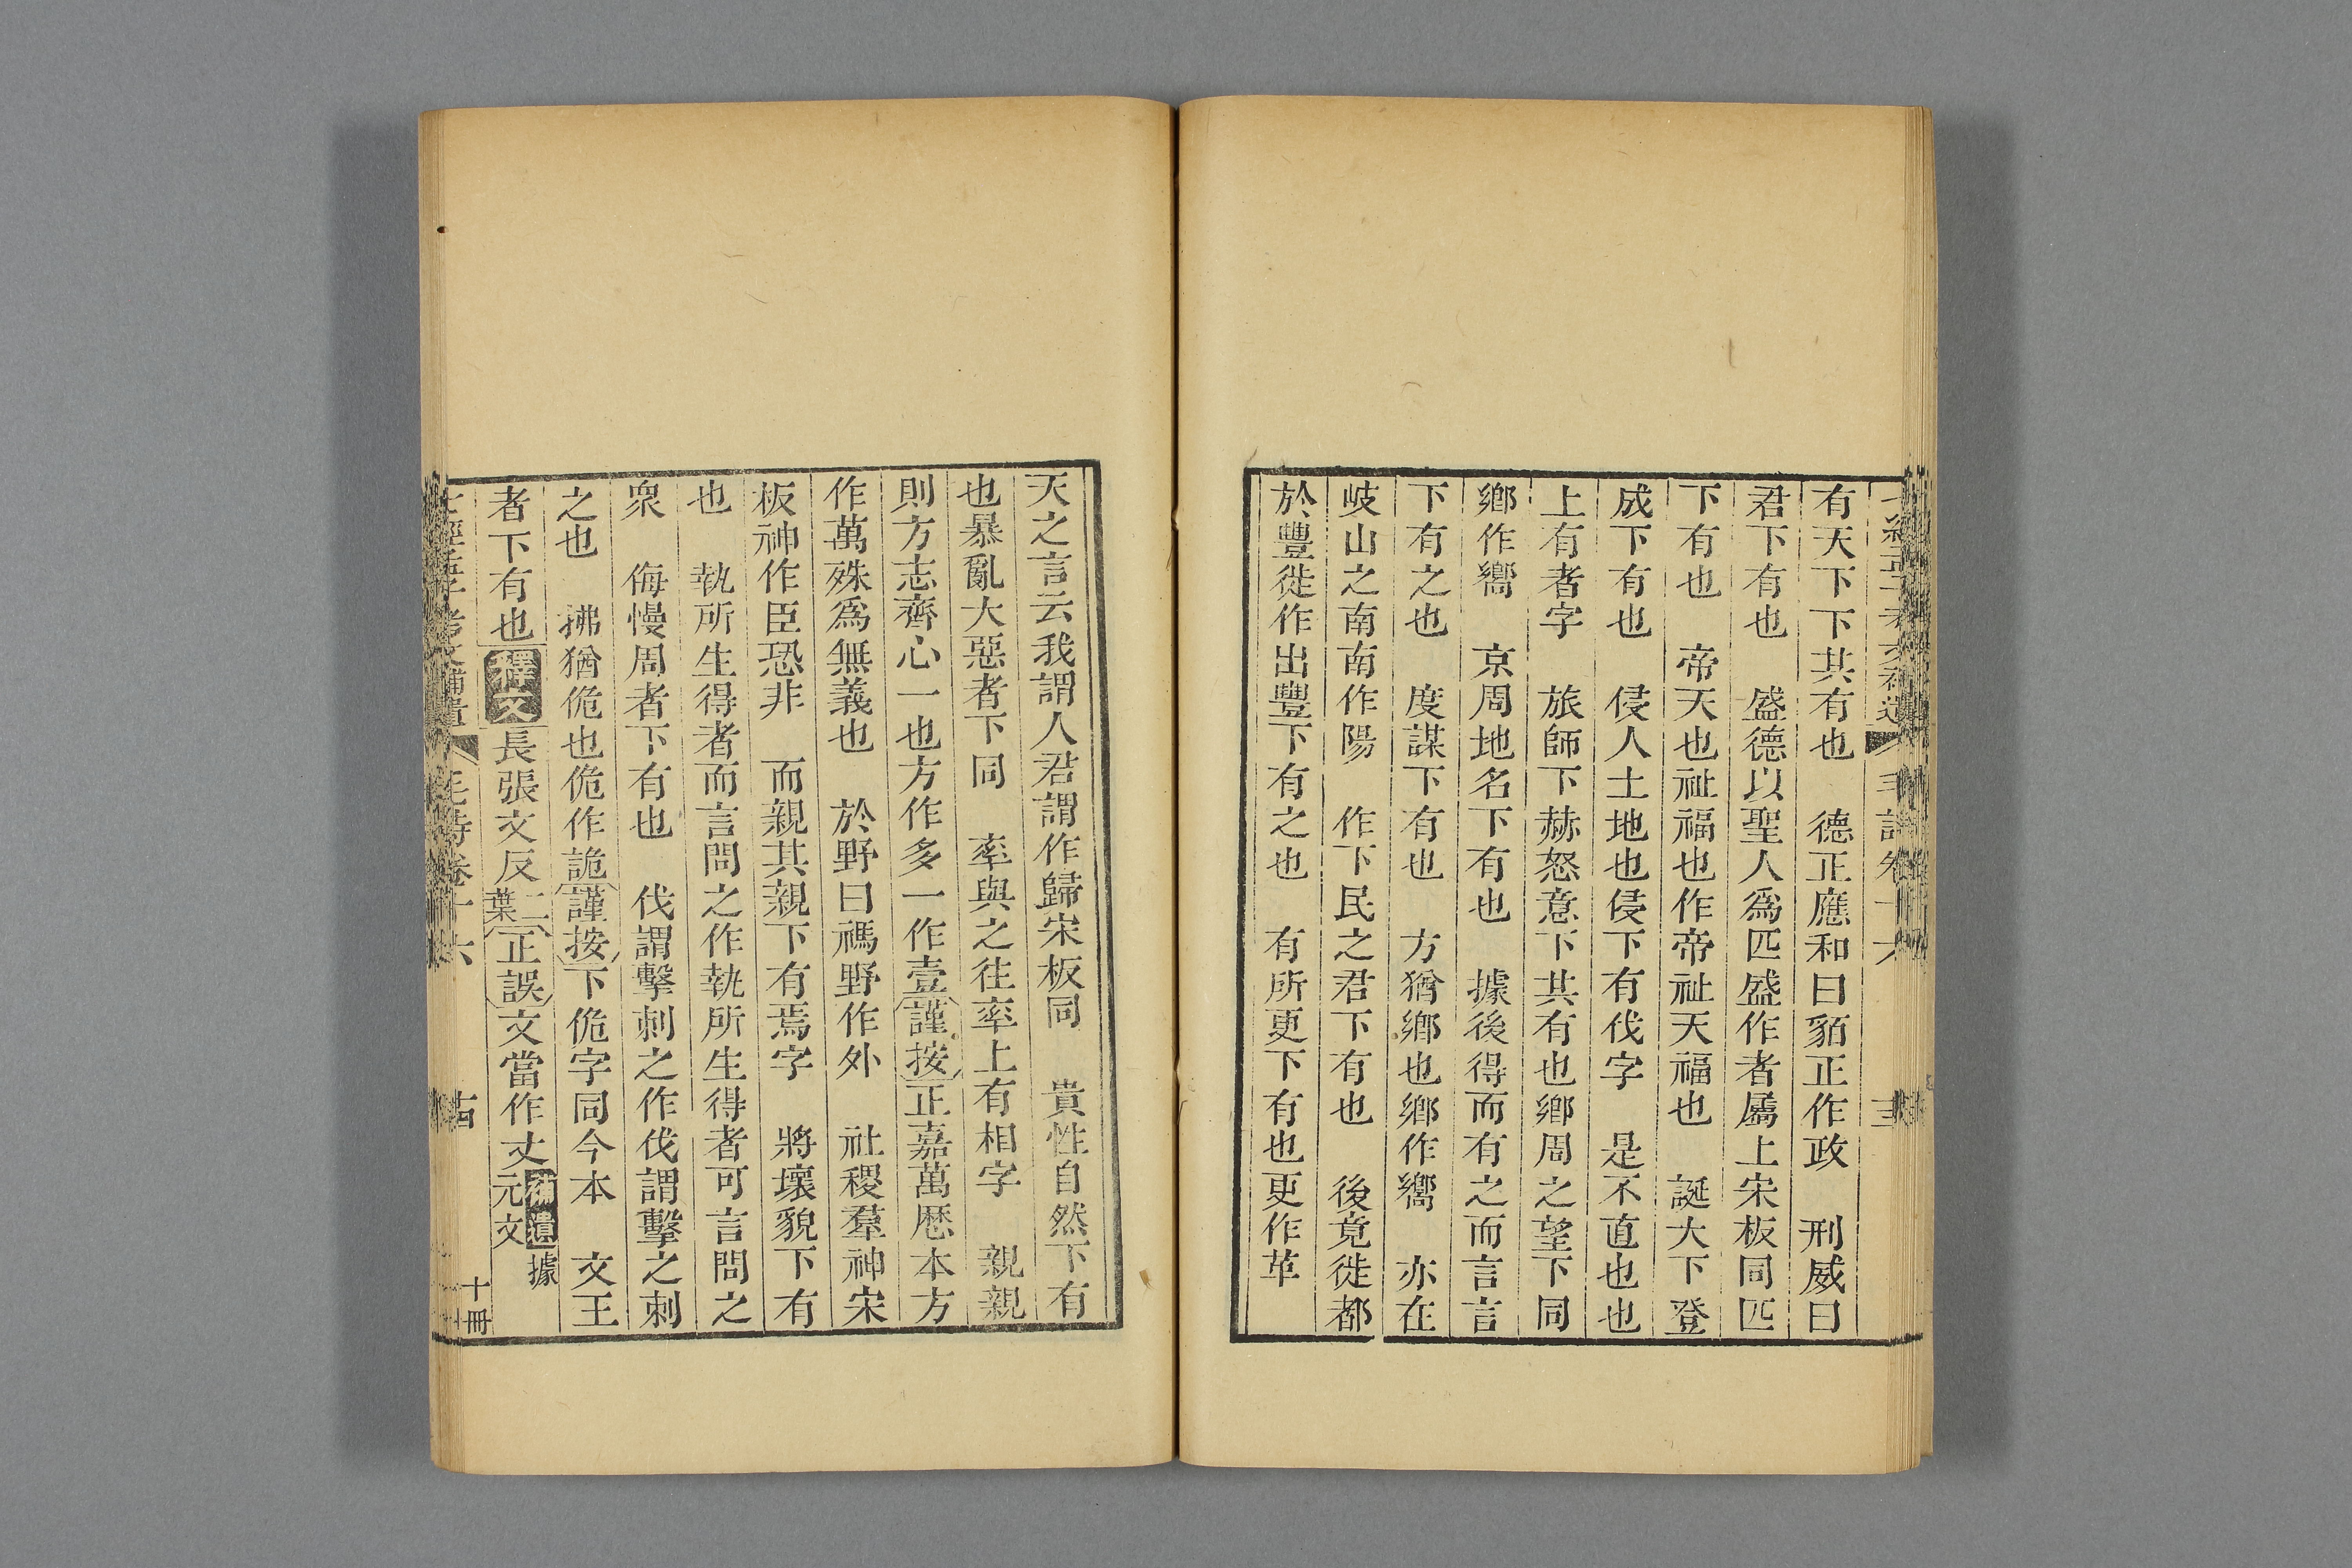 有天下下共有也　德正應和曰貊正作政　刑威曰
君下有也　盛德以聖人爲匹盛作者屬上宋板同匹
下有也　帝天也祉福也作帝祉天福也　誕大下登
成下有也　侵人土地也侵下有伐字　是不直也也
上有者字　旅師下赫怒意下共有也鄉周之望下同
鄉作嚮　京周地名下有也　據後得而有之而言言
下有之也　度謀下有也　方猶鄉也鄉作嚮　亦在
岐山之南南作陽　作下民之君下有也　後竟徙都
於豐徙作出豐下有之也　有所更下有也更作革
天之言云我謂人君謂作歸宋板同　貴性自然下有
也暴亂大惡者下同　率與之往率上有相字　親親
則方志齊心一也方作多一作壹謹按正嘉萬厯本方
作萬殊爲無義也　於野曰禡野作外　社稷羣神宋
板神作臣恐非　而親其親下有焉字　將壞貌下有
也　執所生得者而言問之作執所生得者可言問之
衆　侮慢周者下有也　伐謂擊刺之作伐謂擊之刺
之也　拂猶佹也佹作詭謹按下佹字同今本　文王
者下有也釋文長張文反二葉正誤文當作丈補遺據元文
七經孟子考文補遺　毛詩卷十六　十四　十冊